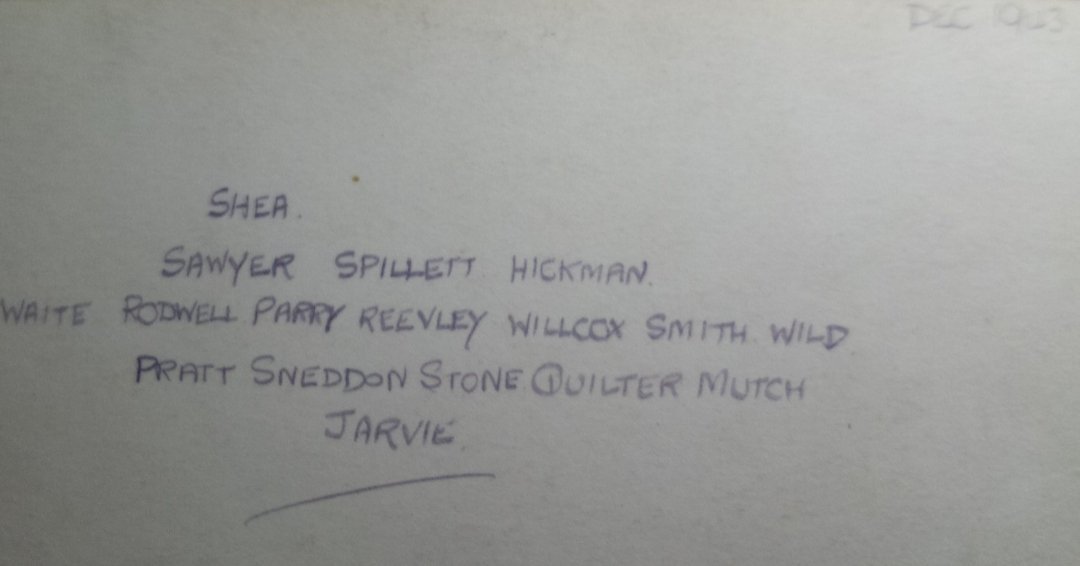 DEC 1943
SHEA.
SAWYER SPILLETT HICKMAN.
WAITE RODWELL PARRY REEVLEY WILLCOX SMITH. WILD
PRATT SNEDDON STONE QUILTER MUTCH
JARVIE.